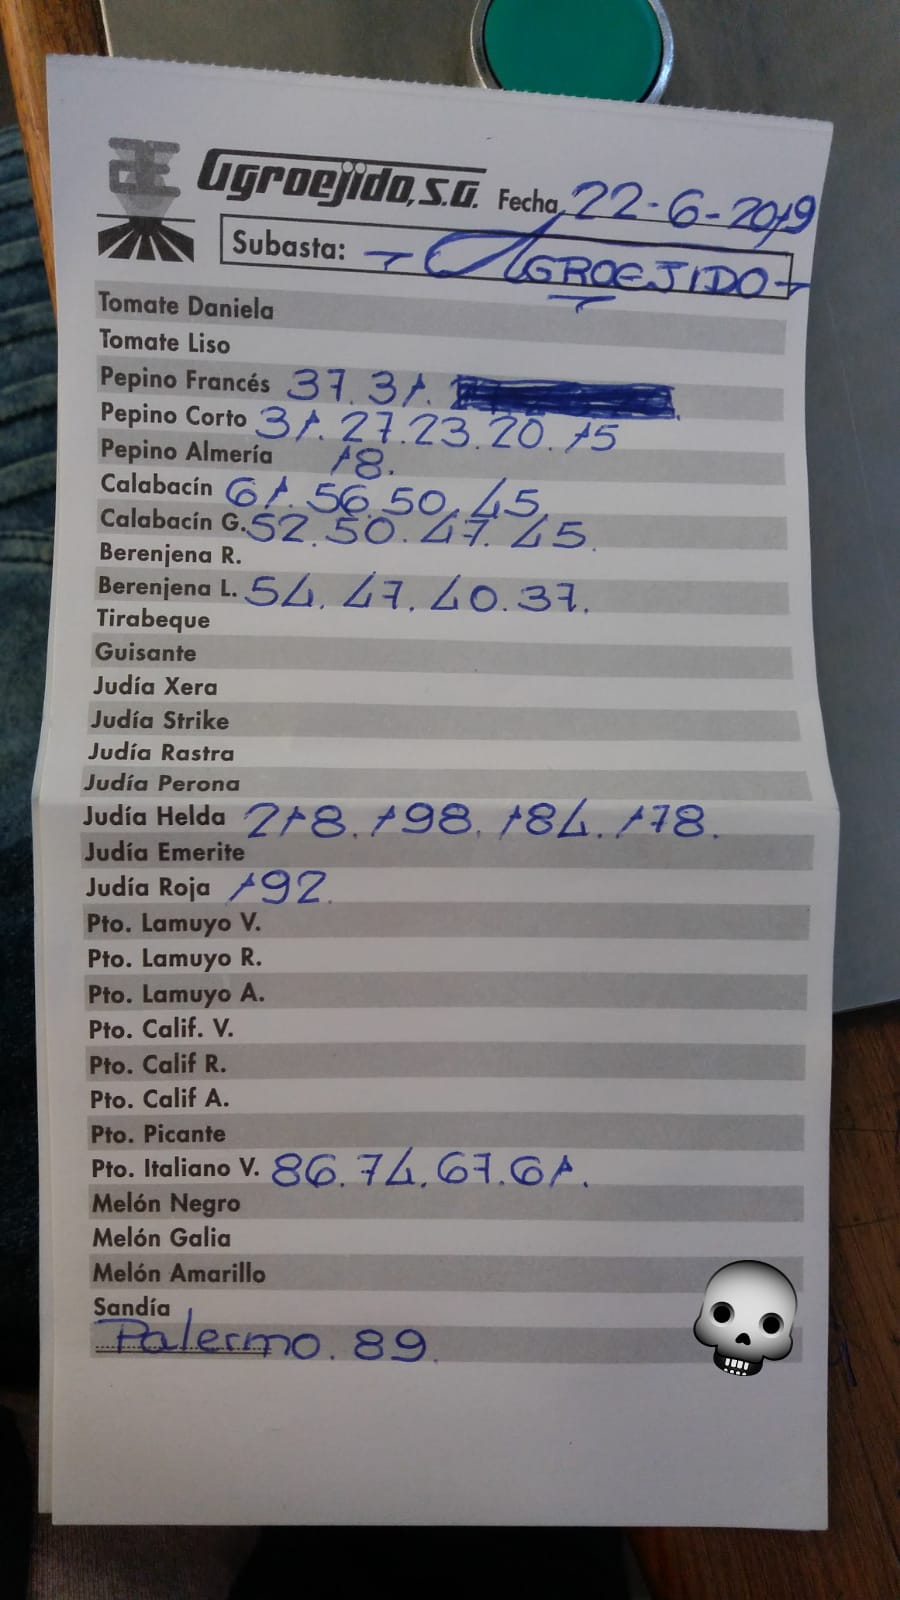 agroejido, S.A. Fecha 22-6-2019
Subasta: - AGROEJIDO -
Tomate Daniela
Tomate Liso
Pepino Francés 37. 31.
Pepino Corto 31. 27. 23. 20. 15
Pepino Almería 18.
Calabacín 61. 56. 50. 45.
Calabacín G. 52. 50. 47. 45.
Berenjena R.
Berenjena L. 54. 47. 40. 37.
Tirabeque
Guisante
Judía Xera
Judía Strike
Judía Rastra
Judía Perona
Judía Helda 218. 198. 184. 178.
Judía Emerite
Judía Roja 192.
Pto. Lamuyo V.
Pto. Lamuyo R.
Pto. Lamuyo A.
Pto. Calif. V.
Pto. Calif R.
Pto. Calif A.
Pto. Picante
Pto. Italiano V. 86. 74. 67. 61.
Melón Negro
Melón Galia
Melón Amarillo
Sandía
Palermo. 89.